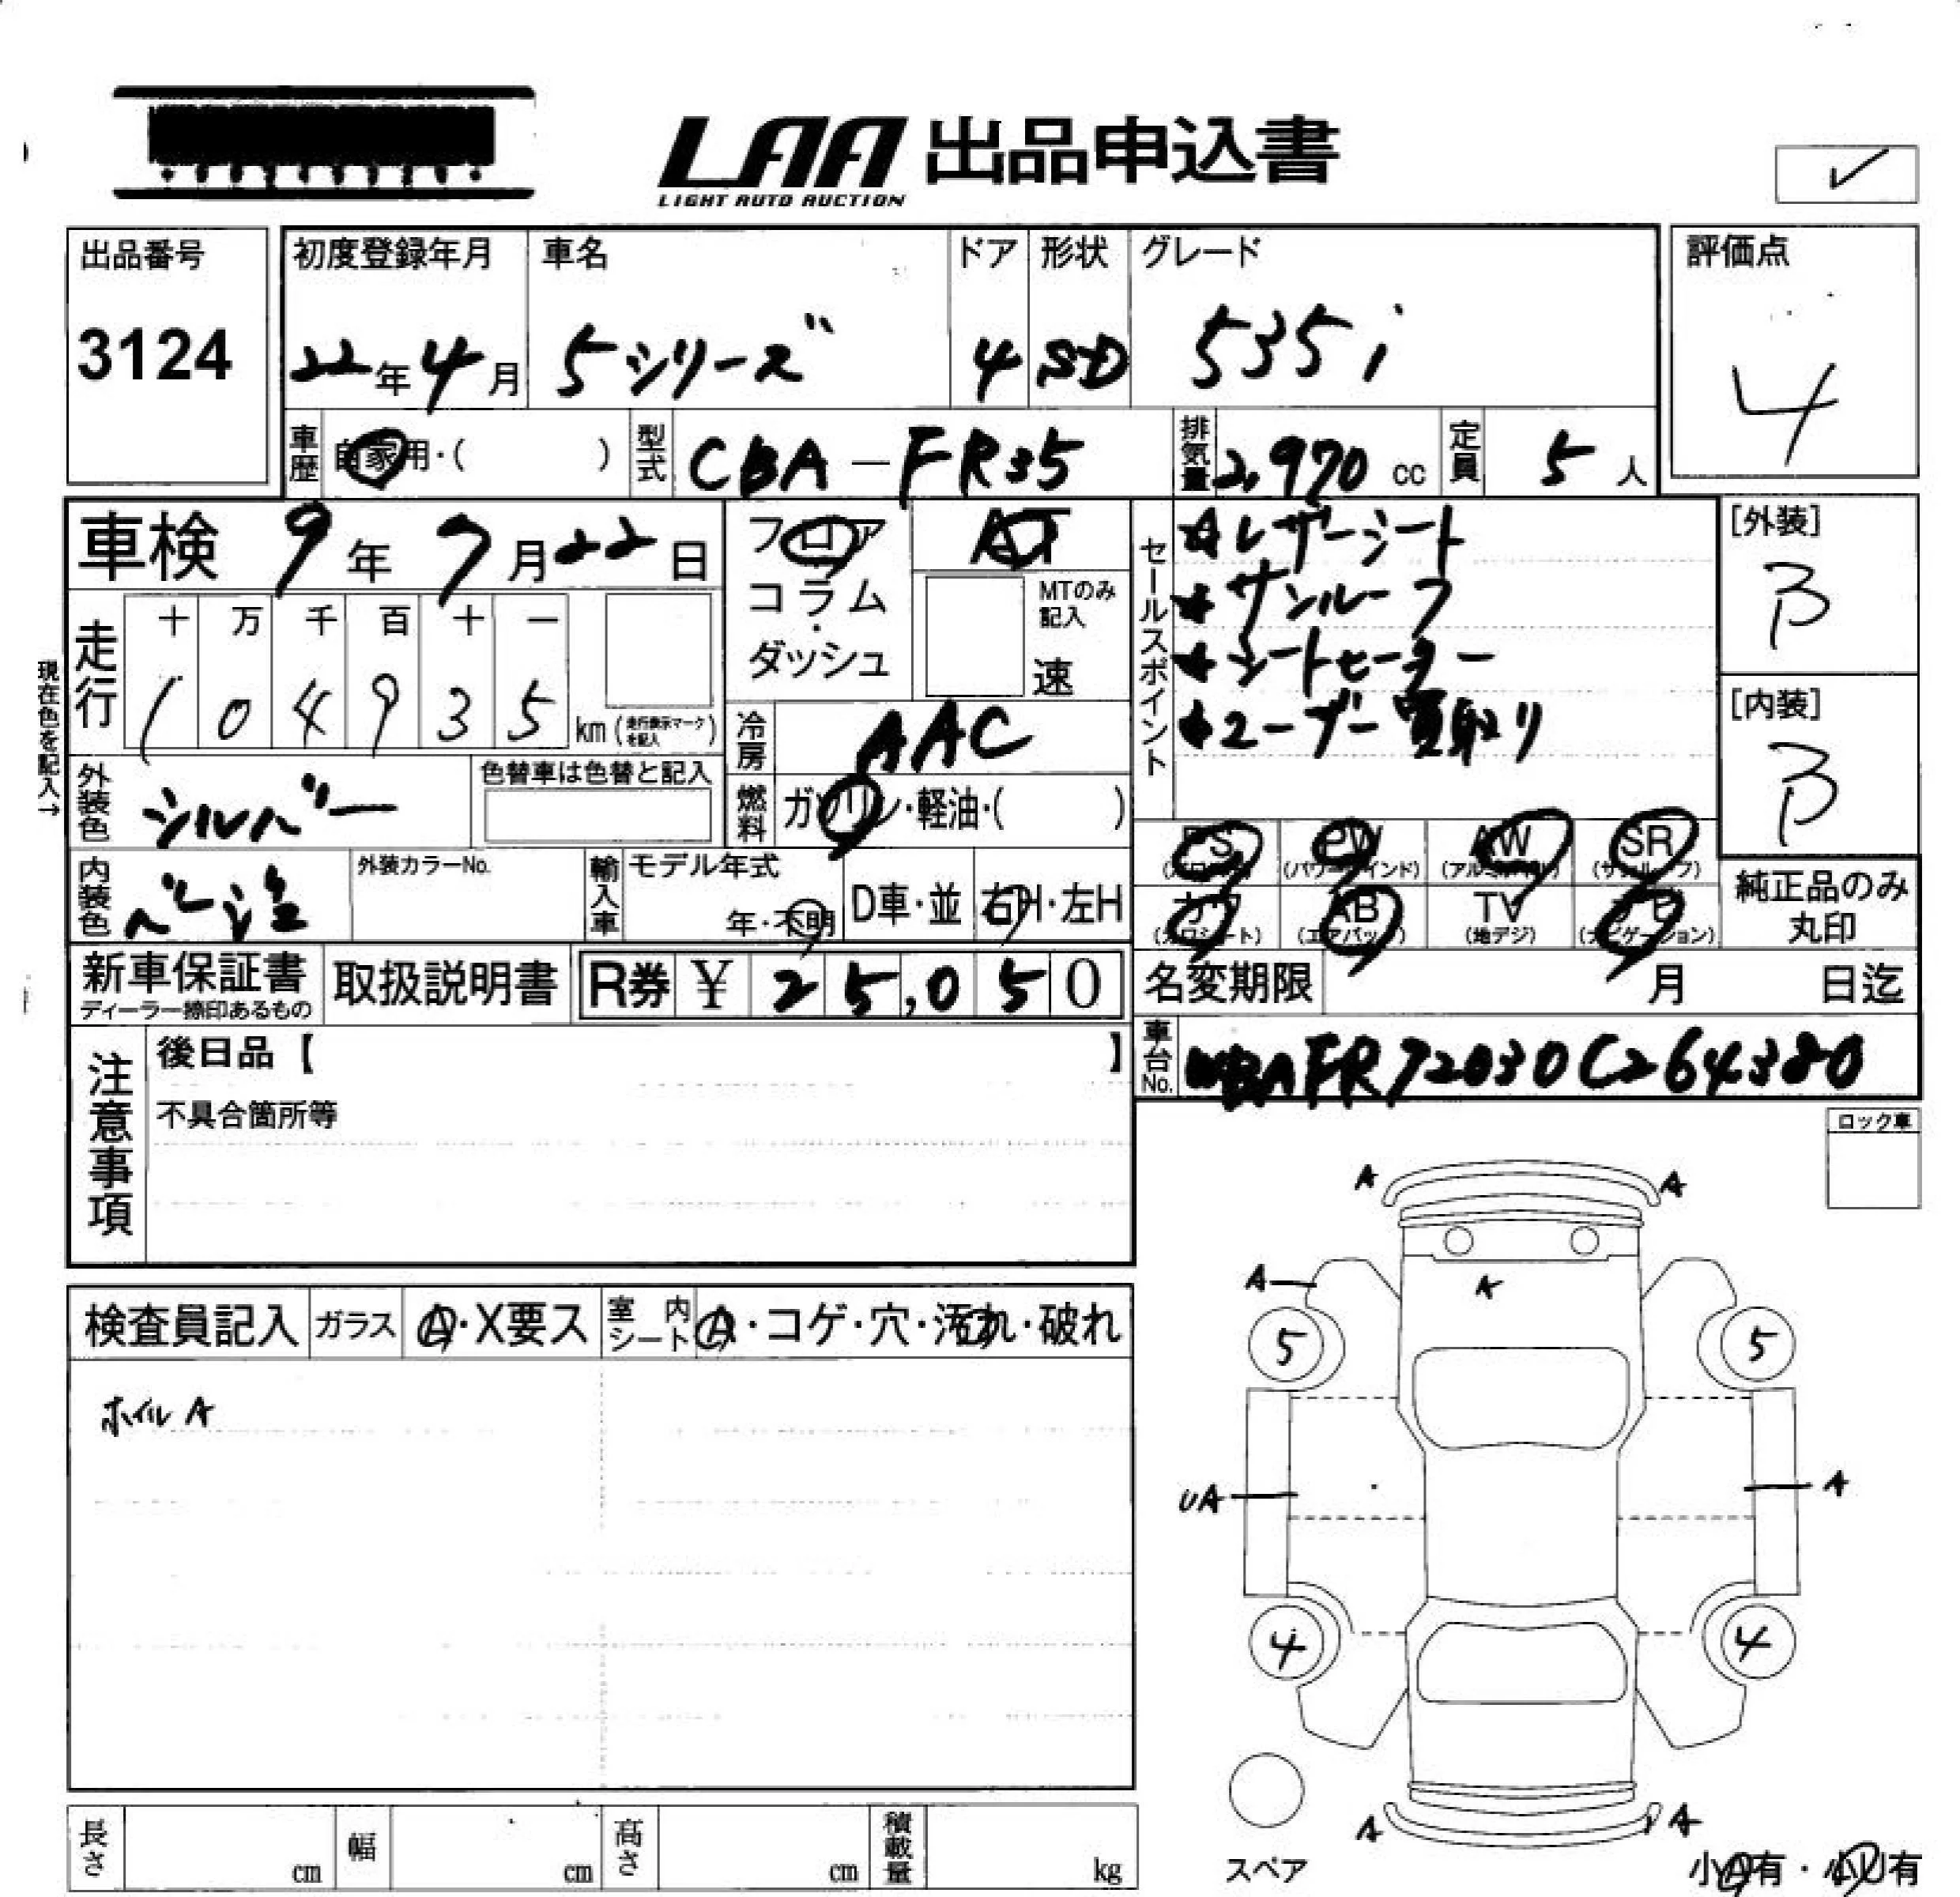 LAA 出品申込書
LIGHT AUTO AUCTION
✓
出品番号
3124
初度登録年月
22年4月
車名
5シリーズ
ドア
4
形状
SD
グレード
535i
評価点
4
車歴 自家用・( )
型式 CBA-FR35
排気量 2,970 cc
定員 5人
車検 9年7月22日
走行
十 万 千 百 十 一
1 0 4 9 3 5 km (走行表示マークを記入)
現在色を記入→
フロア
コラム
・
ダッシュ
AT
MTのみ記入
速
冷房 AAC
燃料 ガソリン・軽油・( )
セールスポイント
★レザーシート
★サンルーフ
★シートヒーター
★ユーザー買取り
[外装]
B
[内装]
B
外装色 シルバー
色替車は色替と記入
内装色
外装カラーNo.
輸入車
モデル年式
年・不明
D車・並
右H・左H
PS PW AW SR
(パワーウインド) (サンルーフ)
カワ AB TV ナビ
(カワシート) (エアバッグ) (地デジ) (ナビゲーション)
純正品のみ
丸印
新車保証書
ディーラー捺印あるもの
取扱説明書
R券 ¥ 25,050
名変期限 月 日迄
車台No. WBAFR72030C264380
注意事項
後日品【 】
不具合箇所等
ロック車
検査員記入
ガラス A・X要ス
室内シート A・コゲ・穴・汚れ・破れ
ホイル A
A A
A A
5 5
UA A
4 4
A A
スペア
小A有・小U有
長さ cm
幅 cm
高さ cm
積載量 kg